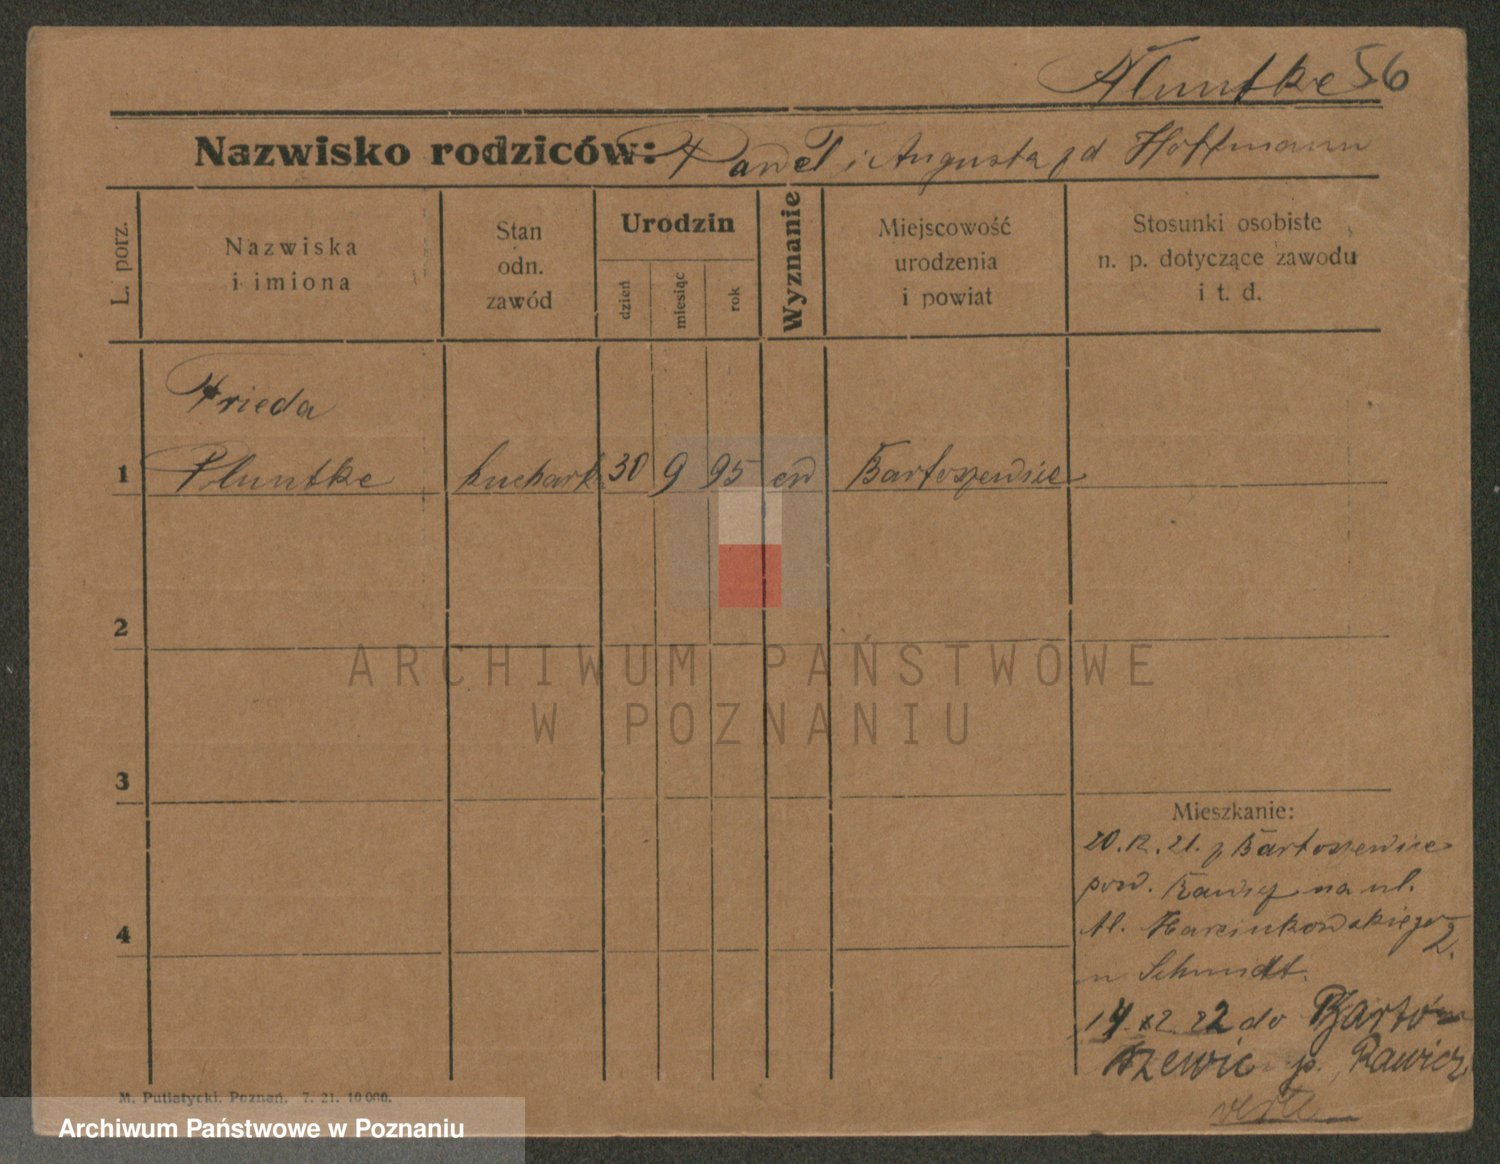 Pluntke 56
Nazwisko rodziców: Paweł i Augusta zd Hoffmann
L. porz.
Nazwiska
i imiona
Stan
odn.
zawód
Urodzin
dzień
miesiąc
rok
Wyznanie
Miejscowość
urodzenia
i powiat
Stosunki osobiste
n. p. dotyczące zawodu
i t. d.
Frieda
1 Pluntke kuchark 30 9 95 ew Bartoszewice
2
ARCHIWUM PAŃSTWOWE
W POZNANIU
3
Mieszkanie:
20.12.21. z Bartoszewice
pow. Rawicz na ul.
M. Marcinkowskiego 2.
u Schmidt.
4
14.12.22 do Barto-
szewic p. Rawicz
M. Putiatycki. Poznań. 7. 21. 10 000.
Archiwum Państwowe w Poznaniu